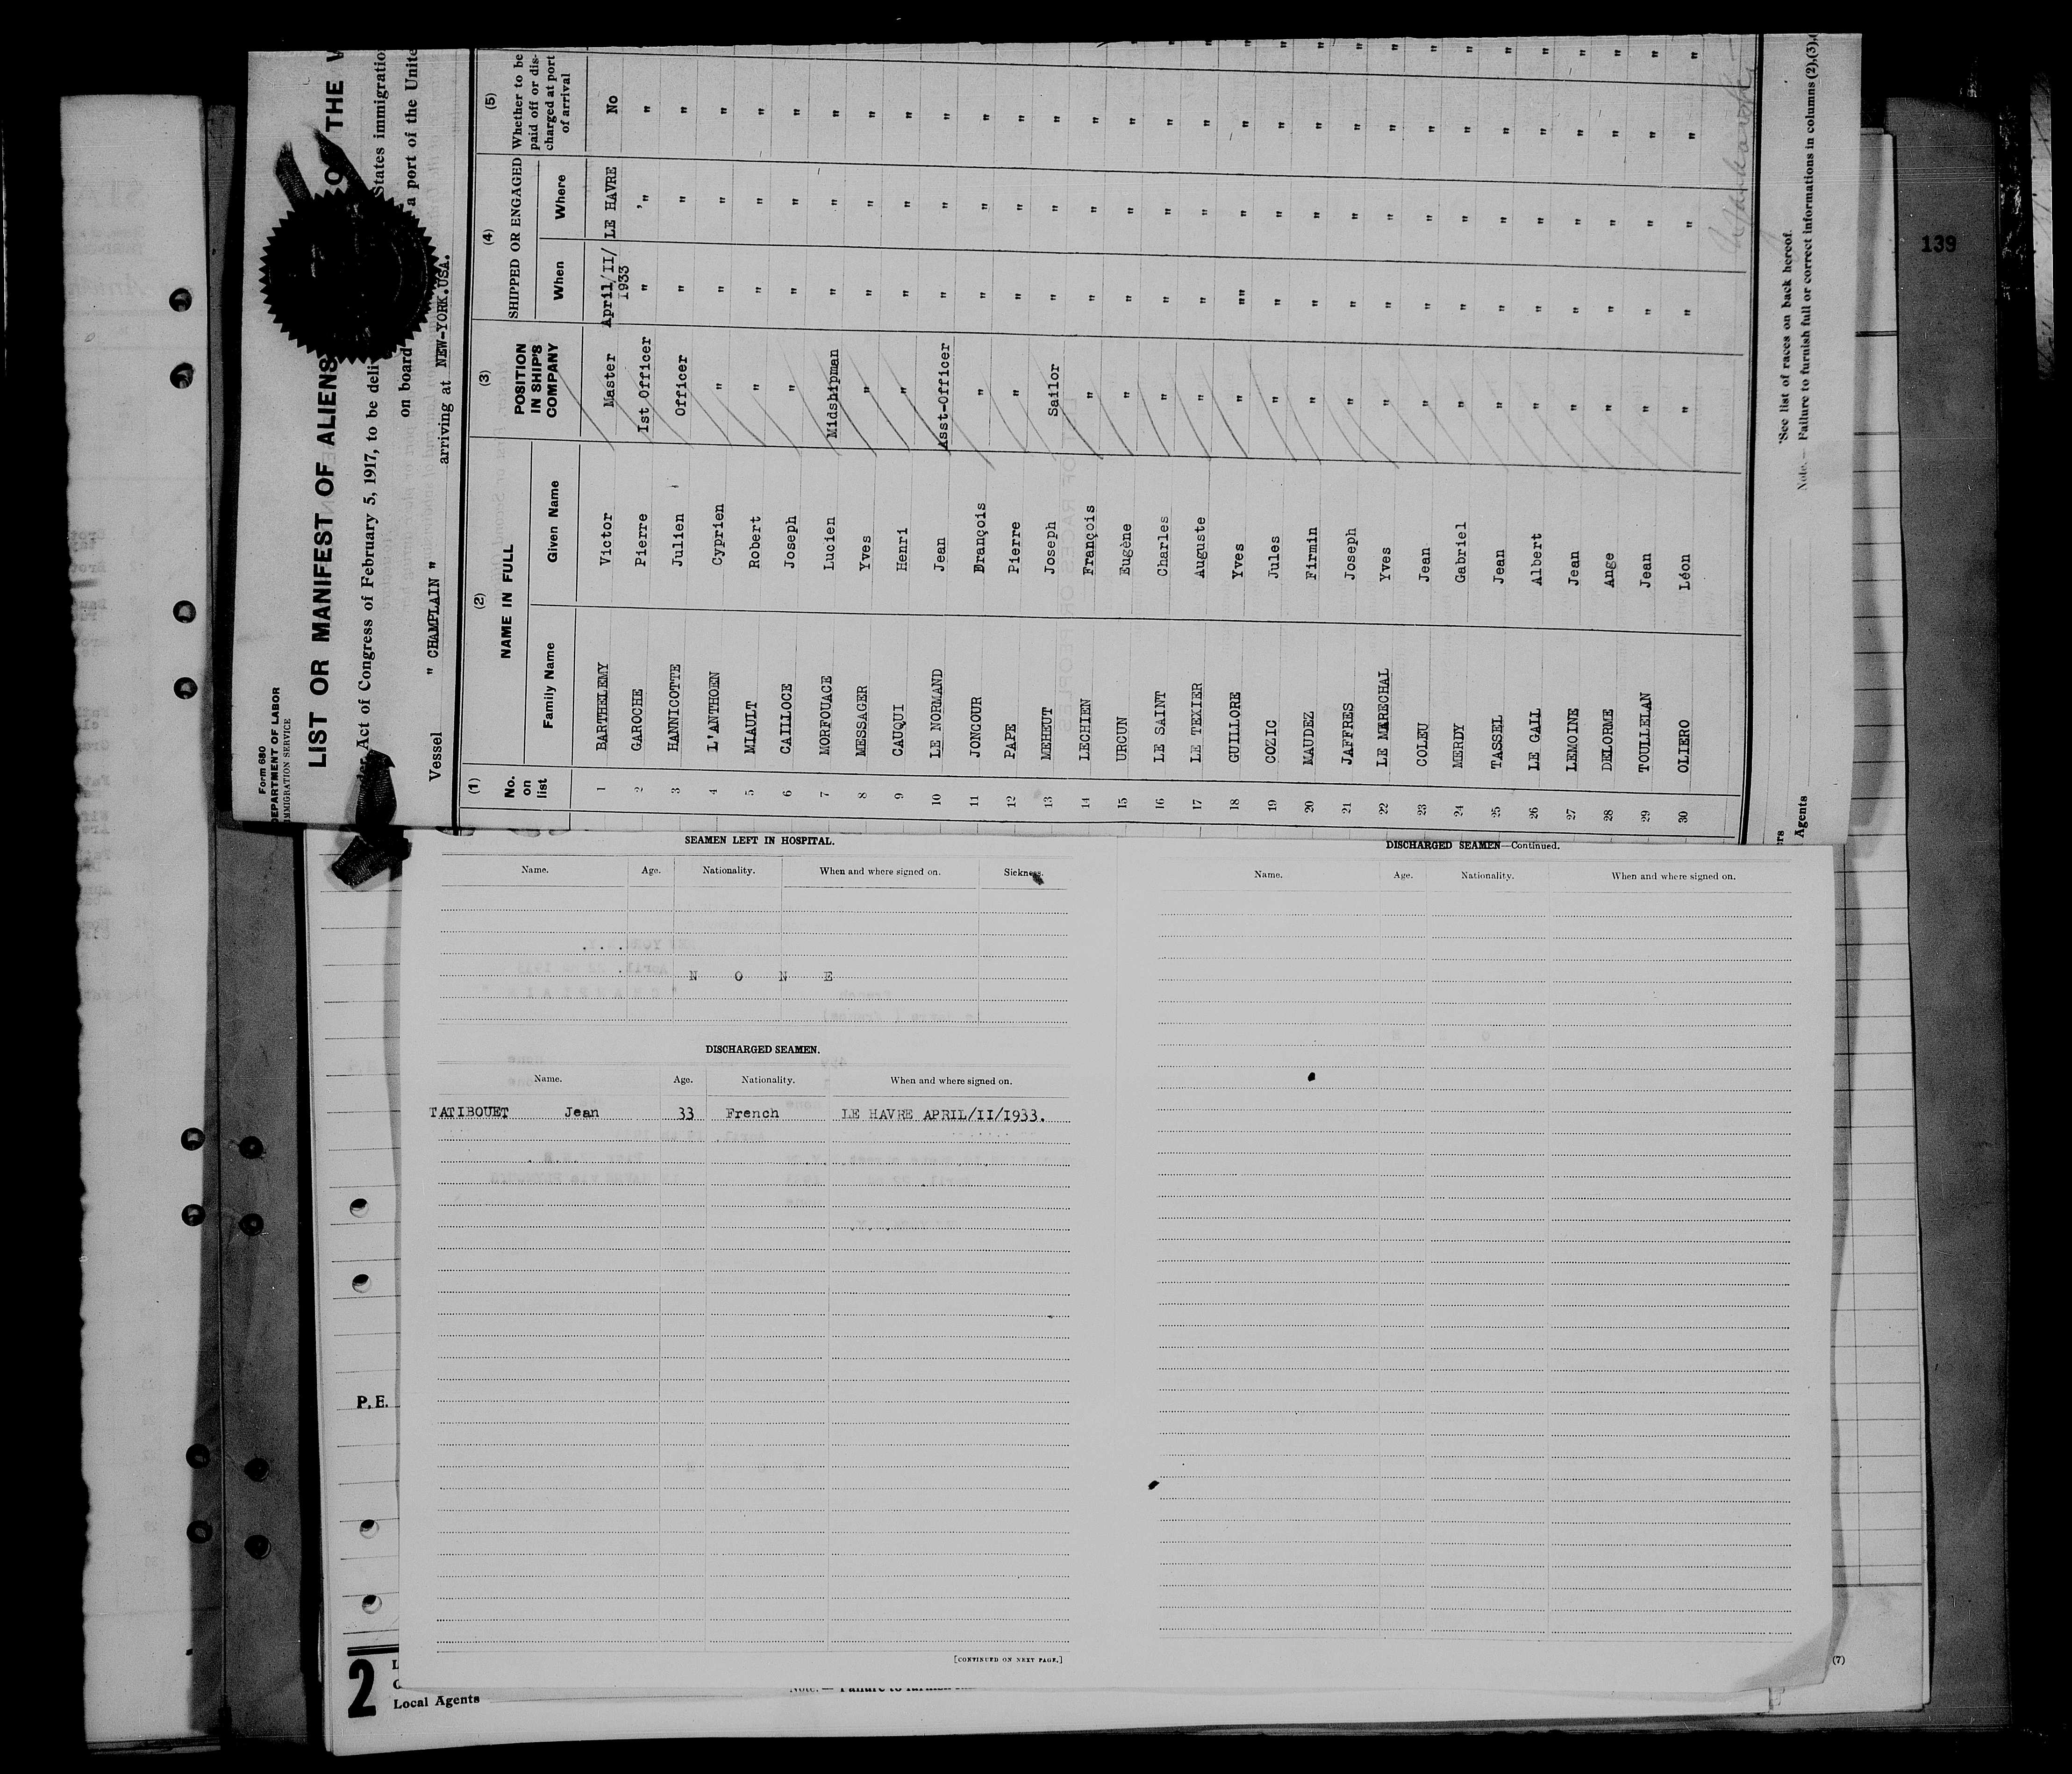 Form 680
DEPARTMENT OF LABOR
IMMIGRATION SERVICE
LIST OR MANIFEST OF ALIENS THE
Act of Congress of February 5, 1917, to be deli States immigratio
on board a port of the Unite
Vessel " CHAMPLAIN " arriving at NEW-YORK.USA.
(1) (2) (3) (4) (5)
No. on list NAME IN FULL POSITION IN SHIP'S COMPANY SHIPPED OR ENGAGED Whether to be paid off or dis- charged at port of arrival
Family Name Given Name When Where
1 BARTHELEMY Victor Master April/II/ 1933 LE HAVRE No
2 GAROCHE Pierre 1st Officer " " "
3 HANNICOTTE Julien Officer " " "
4 L'ANTHOEN Cyprien " " " "
5 MIAULT Robert " " " "
6 CAILLOCE Joseph " " " "
7 MORFOUACE Lucien Midshipman " " "
8 MESSAGER Yves " " " "
9 CAUQUI Henri " " " "
10 LE NORMAND Jean Asst-Officer " " "
11 JONCOUR François " " " "
12 PAPE Pierre " " " "
13 MEHEUT Joseph Sailor " " "
14 LECHIEN François " " " "
15 URCUN Eugène " " " "
16 LE SAINT Charles " " " "
17 LE TEXIER Auguste " " " "
18 GUILLORE Yves " "" " "
19 COZIC Jules " " " "
20 MAUDEZ Firmin " " " "
21 JAFFRES Joseph " " " "
22 LE MARECHAL Yves " " " "
23 COLEU Jean " " " "
24 MERDY Gabriel " " " "
25 TASSEL Jean " " " "
26 LE GALL Albert " " " "
27 LEMOINE Jean " " " "
28 DELORME Ange " " " "
29 TOULLELAN Jean " " " "
30 OLIERO Léon " " " "
*See list of races on back hereof.
Agents Note.— Failure to furnish full or correct informations in columns (2),(3),
139
SEAMEN LEFT IN HOSPITAL.
Name. Age. Nationality. When and where signed on. Sickness.
N O N E
DISCHARGED SEAMEN.
Name. Age. Nationality. When and where signed on.
TATIBOUET Jean 33 French LE HAVRE APRIL/II/I933.
[CONTINUED ON NEXT PAGE.]
DISCHARGED SEAMEN—Continued.
Name. Age. Nationality. When and where signed on.
(7)
P. E.
2
Local Agents
Note.— Failure to furnish